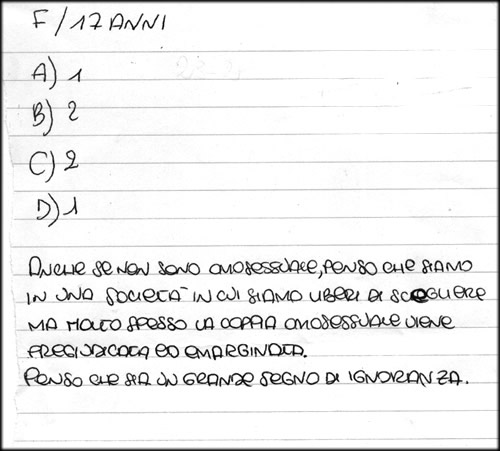 F/17 ANNI
A) 1
B) 2
C) 2
D) 1
ANCHE SE NON SONO OMOSESSUALE, PENSO CHE SIAMO
IN UNA SOCIETÀ IN CUI SIAMO LIBERI DI SCEGLIERE
MA MOLTO SPESSO LA COPPIA OMOSESSUALE VIENE
PREGIUDICATA ED EMARGINATA.
PENSO CHE SIA UN GRANDE SEGNO DI IGNORANZA.